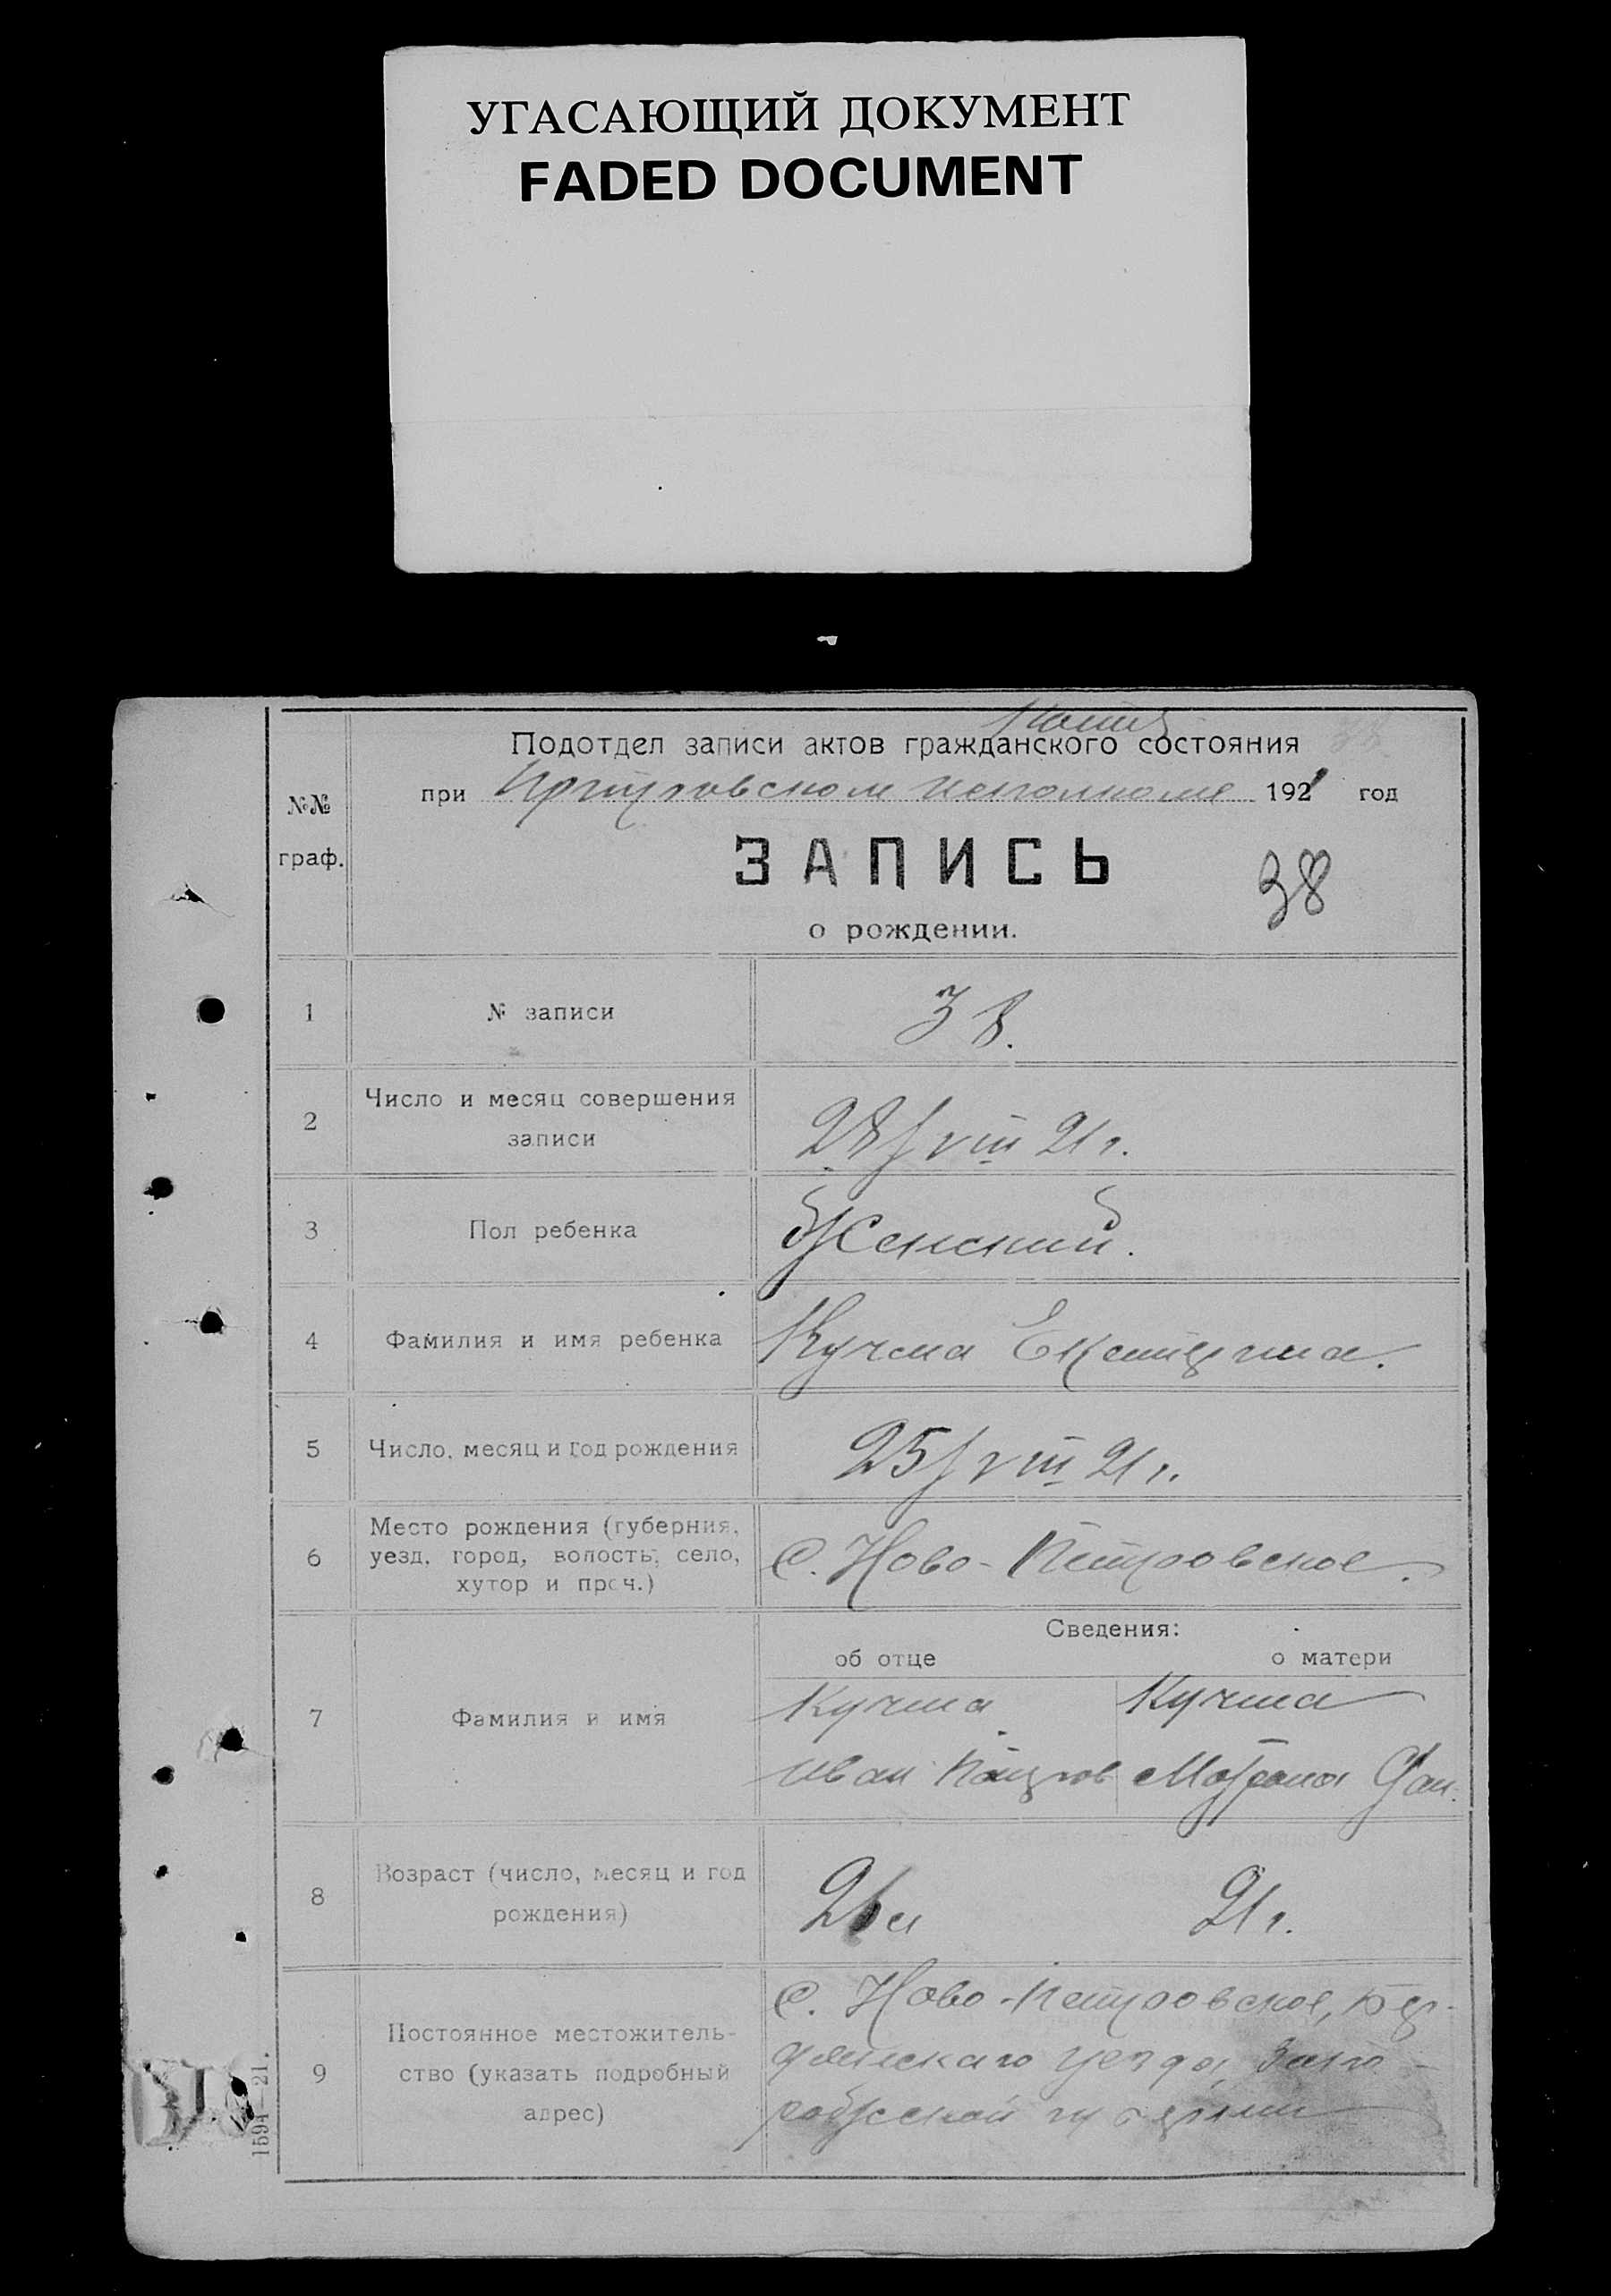 УГАСАЮЩИЙ ДОКУМЕНТ
FADED DOCUMENT
Копия
Подотдел записи актов гражданского состояния
при исполкоме 1921 год
№№
граф.
ЗАПИСЬ
38
о рождении.
1 № записи 38.
2 Число и месяц совершения
записи
28/VIII 21 г.
3 Пол ребенка Женский.
4 Фамилия и имя ребенка Кучма Екатерина.
5 Число, месяц и год рождения 25/VIII 21 г.
6 Место рождения (губерния,
уезд, город, волость, село,
хутор и проч.)
с. Ново-Петровское.
Сведения:
об отце о матери
7 Фамилия и имя
Кучма Кучма
Иван Петров Мотрона
8 Возраст (число, месяц и год
рождения)
21 г.
9 Постоянное местожитель-
ство (указать подробный
адрес)
с. Ново-Петровское, Бер-
дянскаго уезда, Запо-
рожской губернии
1594—21.